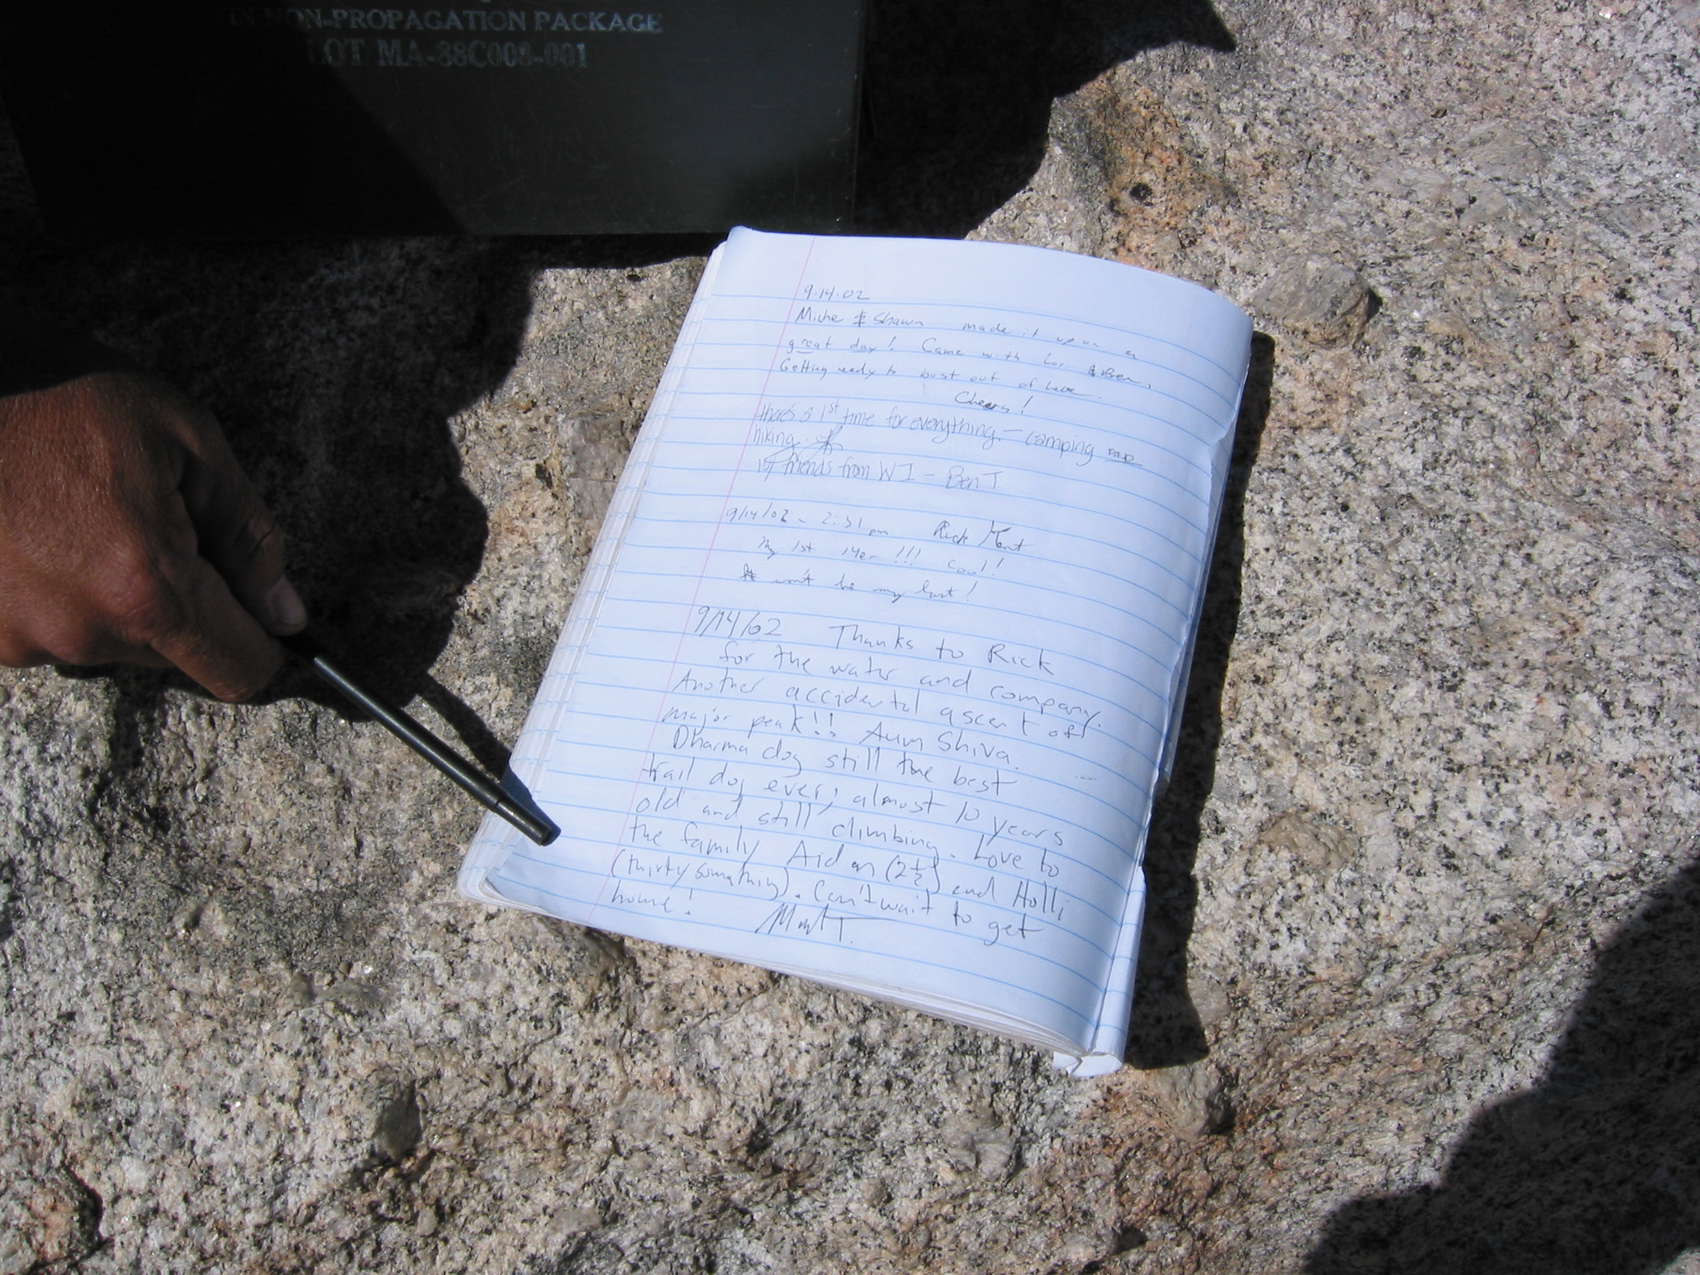 NON-PROPAGATION PACKAGE
LOT MA-88C008-001
9.14.02
& Shawn made it up on a
great day! Came with & Ben.
Getting ready to bust out of here.
Cheers!
there's a 1st time for everything. - camping
hiking.
1st friends from WI - Ben T
9/14/02 - 2:31 pm Rick
My 1st 14er !!! cool!
won't be my last!
9/14/02 Thanks to Rick
for the water and company.
Another accidental ascent of
major peak!! Aum Shiva.
Dharma dog still the best
trail dog ever, almost 10 years
old and still climbing. Love to
the family Aidan (2 1/2) and Holli
(thirtysomething). Can't wait to get
home! T.